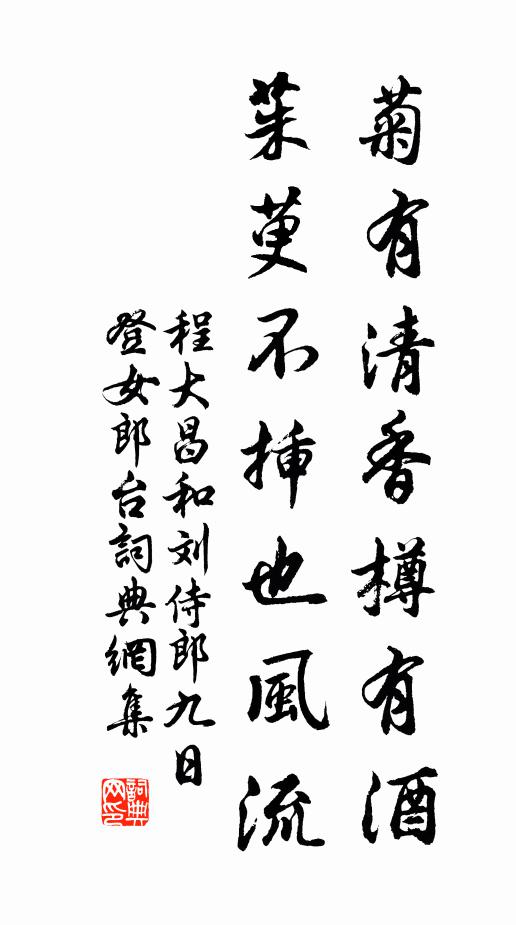 菊有清香樽有酒
茱萸不挿也風流
程大昌和刘侍郎九日
登女郎台詞典網集
詞典网印